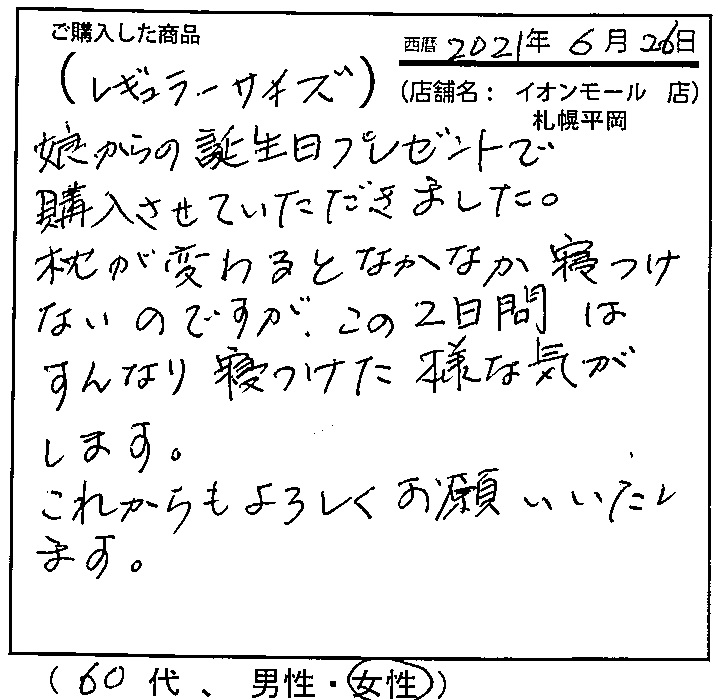 ご購入した商品
西暦 2021年 6月 26日
(レギュラーサイズ)
(店舗名： イオンモール 店)
札幌平岡
娘からの誕生日プレゼントで
購入させていただきました。
枕が変わるとなかなか寝つけ
ないのですが、この2日間は
すんなり寝つけた様な気が
します。
これからもよろしくお願いいたし
ます。
(60代、男性・女性)